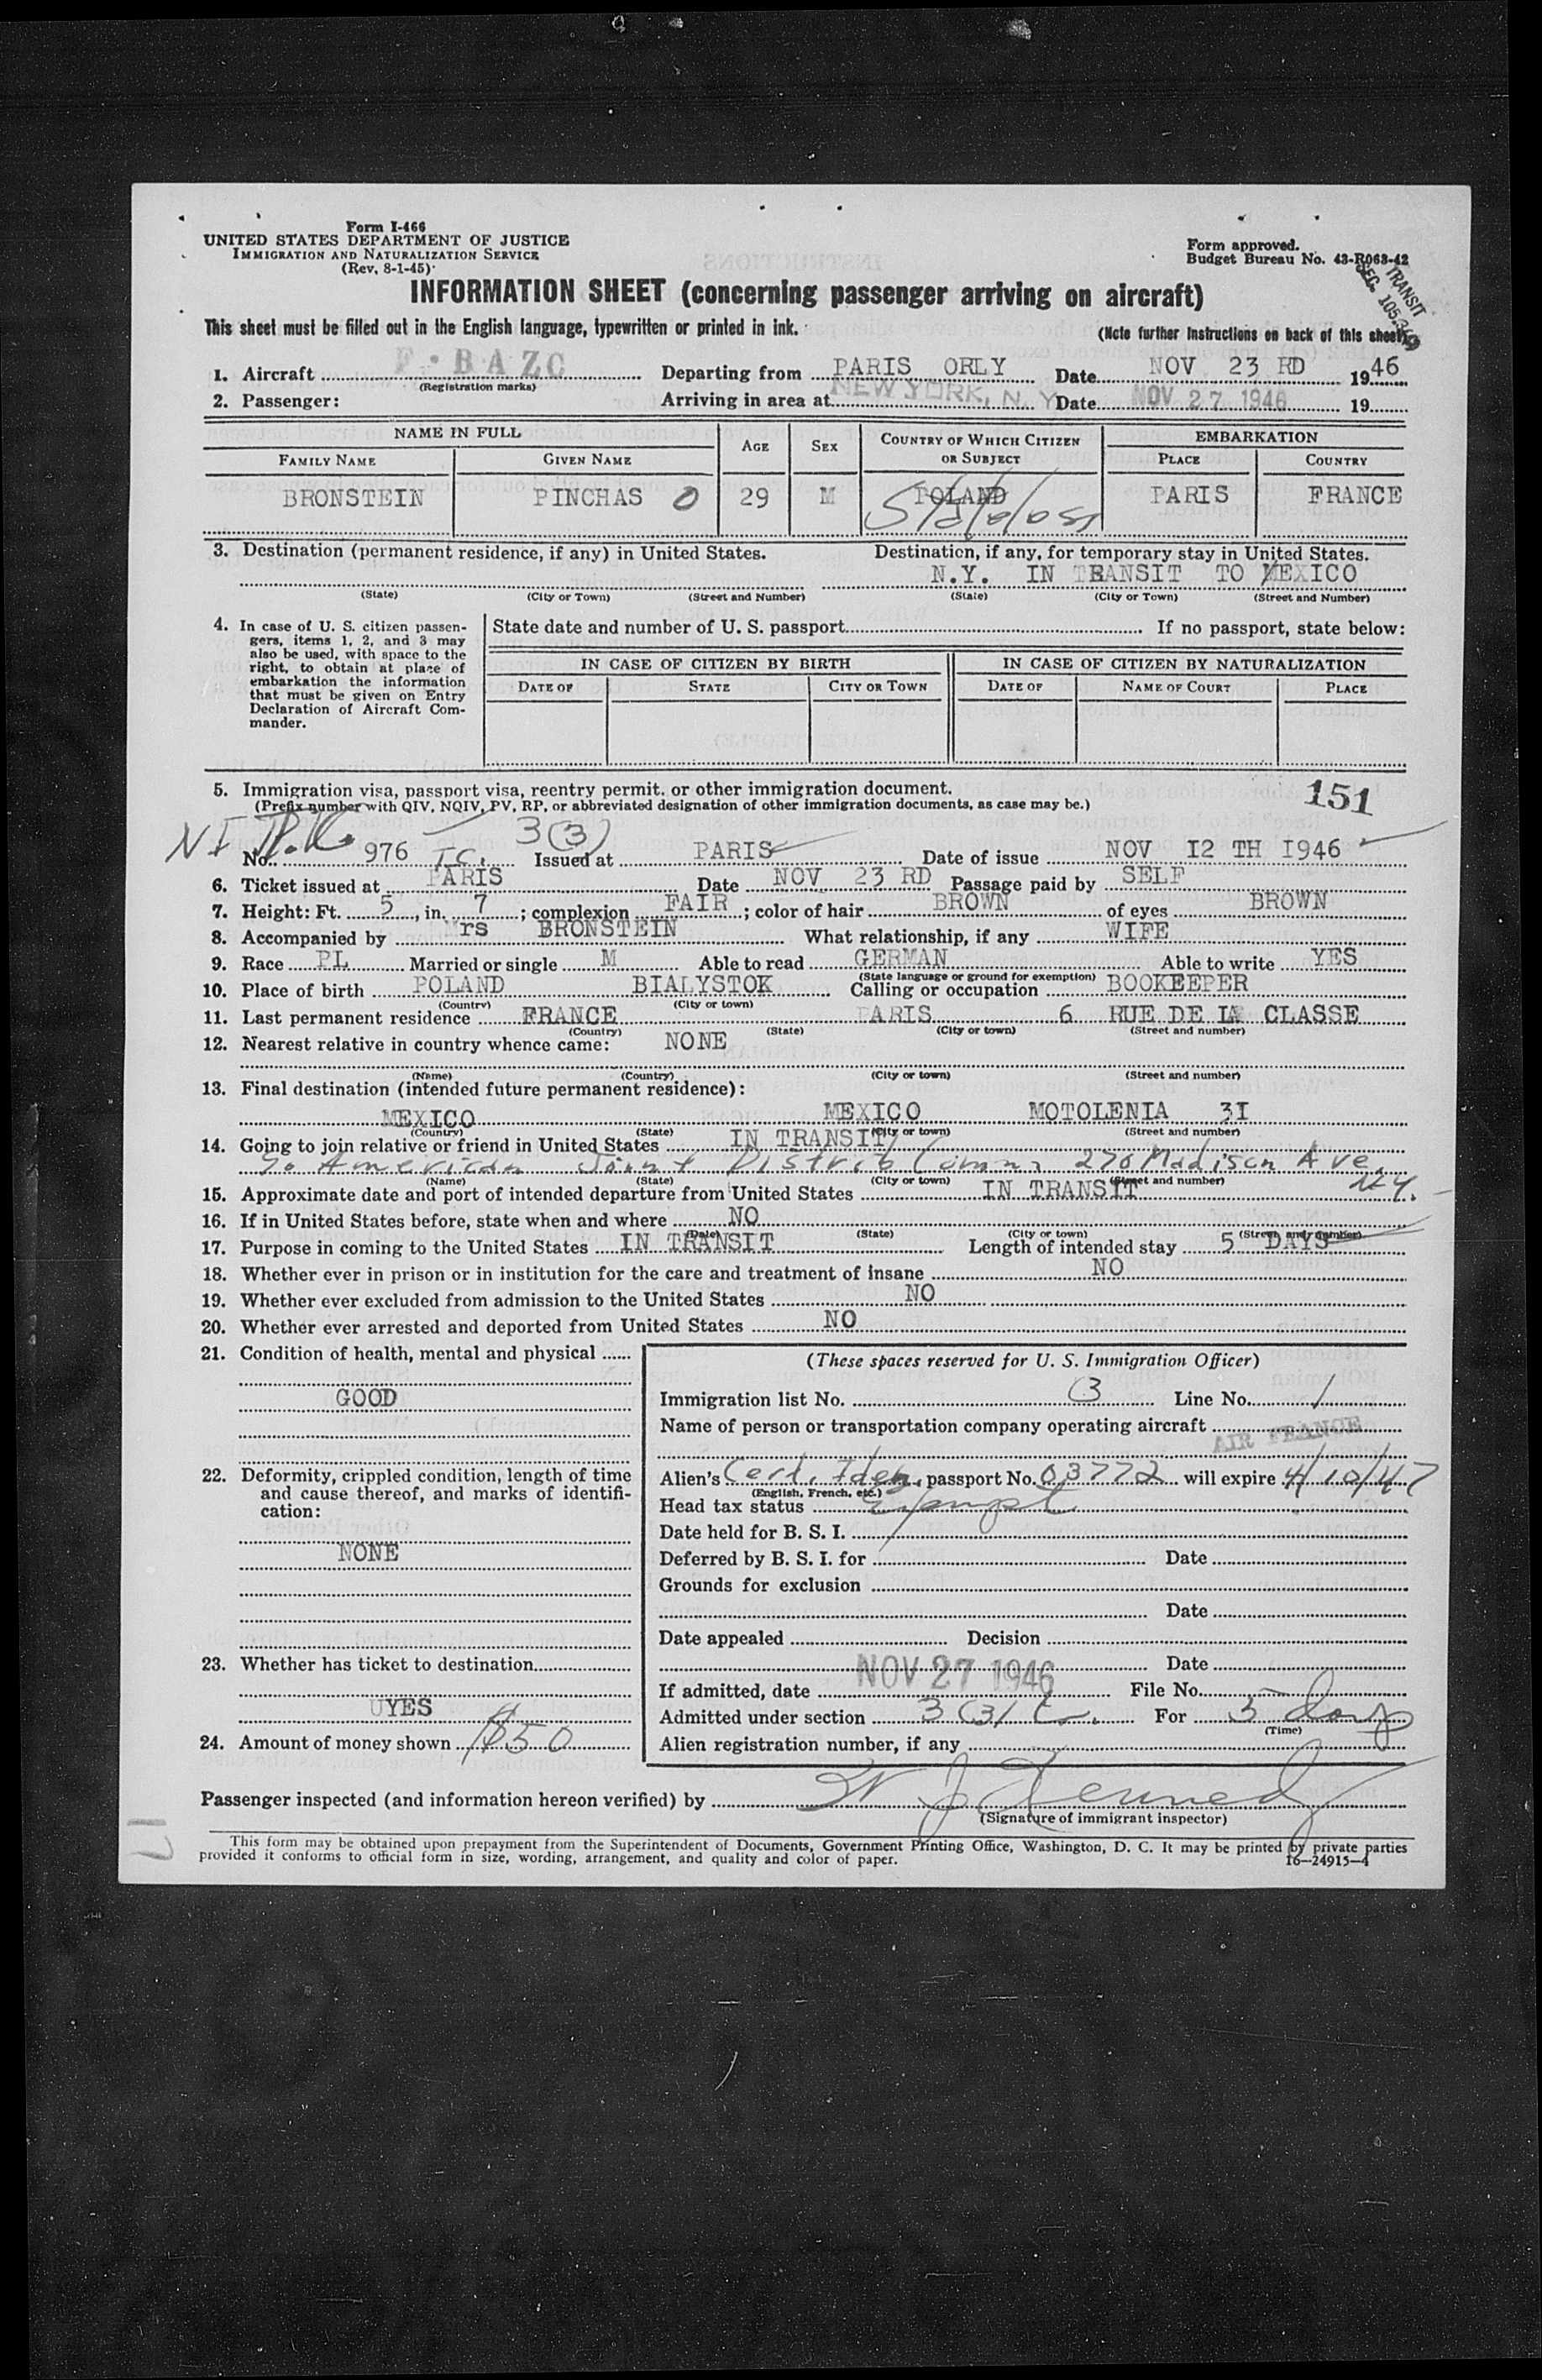 Form I-466
UNITED STATES DEPARTMENT OF JUSTICE
IMMIGRATION AND NATURALIZATION SERVICE
(Rev. 8-1-45)
Form approved.
Budget Bureau No. 43-R063-42
TRANSIT
SEC. 105.3(3)
INFORMATION SHEET (concerning passenger arriving on aircraft)
This sheet must be filled out in the English language, typewritten or printed in ink. (Note further instructions on back of this sheet)
1. Aircraft F·BAZC Departing from PARIS ORLY Date NOV 23 RD 1946
(Registration marks)
2. Passenger: Arriving in area at NEW YORK, N. Y. Date NOV 27 1946 19
NAME IN FULL AGE SEX COUNTRY OF WHICH CITIZEN OR SUBJECT EMBARKATION
FAMILY NAME GIVEN NAME PLACE COUNTRY
BRONSTEIN PINCHAS 0 29 M POLAND PARIS FRANCE
Stateless
3. Destination (permanent residence, if any) in United States. Destination, if any, for temporary stay in United States.
N.Y. IN TRANSIT TO MEXICO
(State) (City or Town) (Street and Number) (State) (City or Town) (Street and Number)
4. In case of U. S. citizen passengers, items 1, 2, and 3 may also be used, with space to the right, to obtain at place of embarkation the information that must be given on Entry Declaration of Aircraft Commander.
State date and number of U. S. passport If no passport, state below:
IN CASE OF CITIZEN BY BIRTH IN CASE OF CITIZEN BY NATURALIZATION
DATE OF STATE CITY OR TOWN DATE OF NAME OF COURT PLACE
5. Immigration visa, passport visa, reentry permit, or other immigration document. 151
(Prefix number with QIV, NQIV, PV, RP, or abbreviated designation of other immigration documents, as case may be.)
3(3)
No. 976 T.C. Issued at PARIS Date of issue NOV I2 TH I946
6. Ticket issued at PARIS Date NOV 23 RD Passage paid by SELF
7. Height: Ft. 5, in. 7; complexion FAIR; color of hair BROWN of eyes BROWN
8. Accompanied by Mrs BRONSTEIN What relationship, if any WIFE
9. Race PL Married or single M Able to read GERMAN Able to write YES
(State language or ground for exemption)
10. Place of birth POLAND BIALYSTOK Calling or occupation BOOKEEPER
(Country) (City or town)
11. Last permanent residence FRANCE PARIS 6 RUE DE LA CLASSE
(Country) (State) (City or town) (Street and number)
12. Nearest relative in country whence came: NONE
(Name) (Country) (City or town) (Street and number)
13. Final destination (intended future permanent residence):
MEXICO MEXICO MOTOLENIA 3I
(Country) (State) (City or town) (Street and number)
14. Going to join relative or friend in United States IN TRANSIT
American Joint Distrib Comm. 270 Madison Ave. N.Y.
(Name) (State) (City or town) (Street and number)
15. Approximate date and port of intended departure from United States IN TRANSIT
16. If in United States before, state when and where NO
(Date) (State) (City or town) (Street and number)
17. Purpose in coming to the United States IN TRANSIT Length of intended stay 5 DAYS
18. Whether ever in prison or in institution for the care and treatment of insane NO
19. Whether ever excluded from admission to the United States NO
20. Whether ever arrested and deported from United States NO
21. Condition of health, mental and physical
GOOD
22. Deformity, crippled condition, length of time and cause thereof, and marks of identification:
NONE
23. Whether has ticket to destination
YES
24. Amount of money shown $50
(These spaces reserved for U. S. Immigration Officer)
Immigration list No. 3 Line No. 1
Name of person or transportation company operating aircraft
AIR FRANCE
Alien's Cert. Iden. passport No. 03772 will expire 4/10/47
(English, French, etc.)
Head tax status Exempt
Date held for B. S. I.
Deferred by B. S. I. for Date
Grounds for exclusion
Date
Date appealed Decision
Date
If admitted, date NOV 27 1946 File No.
Admitted under section 3(3) For 5 days
(Time)
Alien registration number, if any
Passenger inspected (and information hereon verified) by W J Kennedy
(Signature of immigrant inspector)
This form may be obtained upon prepayment from the Superintendent of Documents, Government Printing Office, Washington, D. C. It may be printed by private parties
provided it conforms to official form in size, wording, arrangement, and quality and color of paper. 16—24915-4